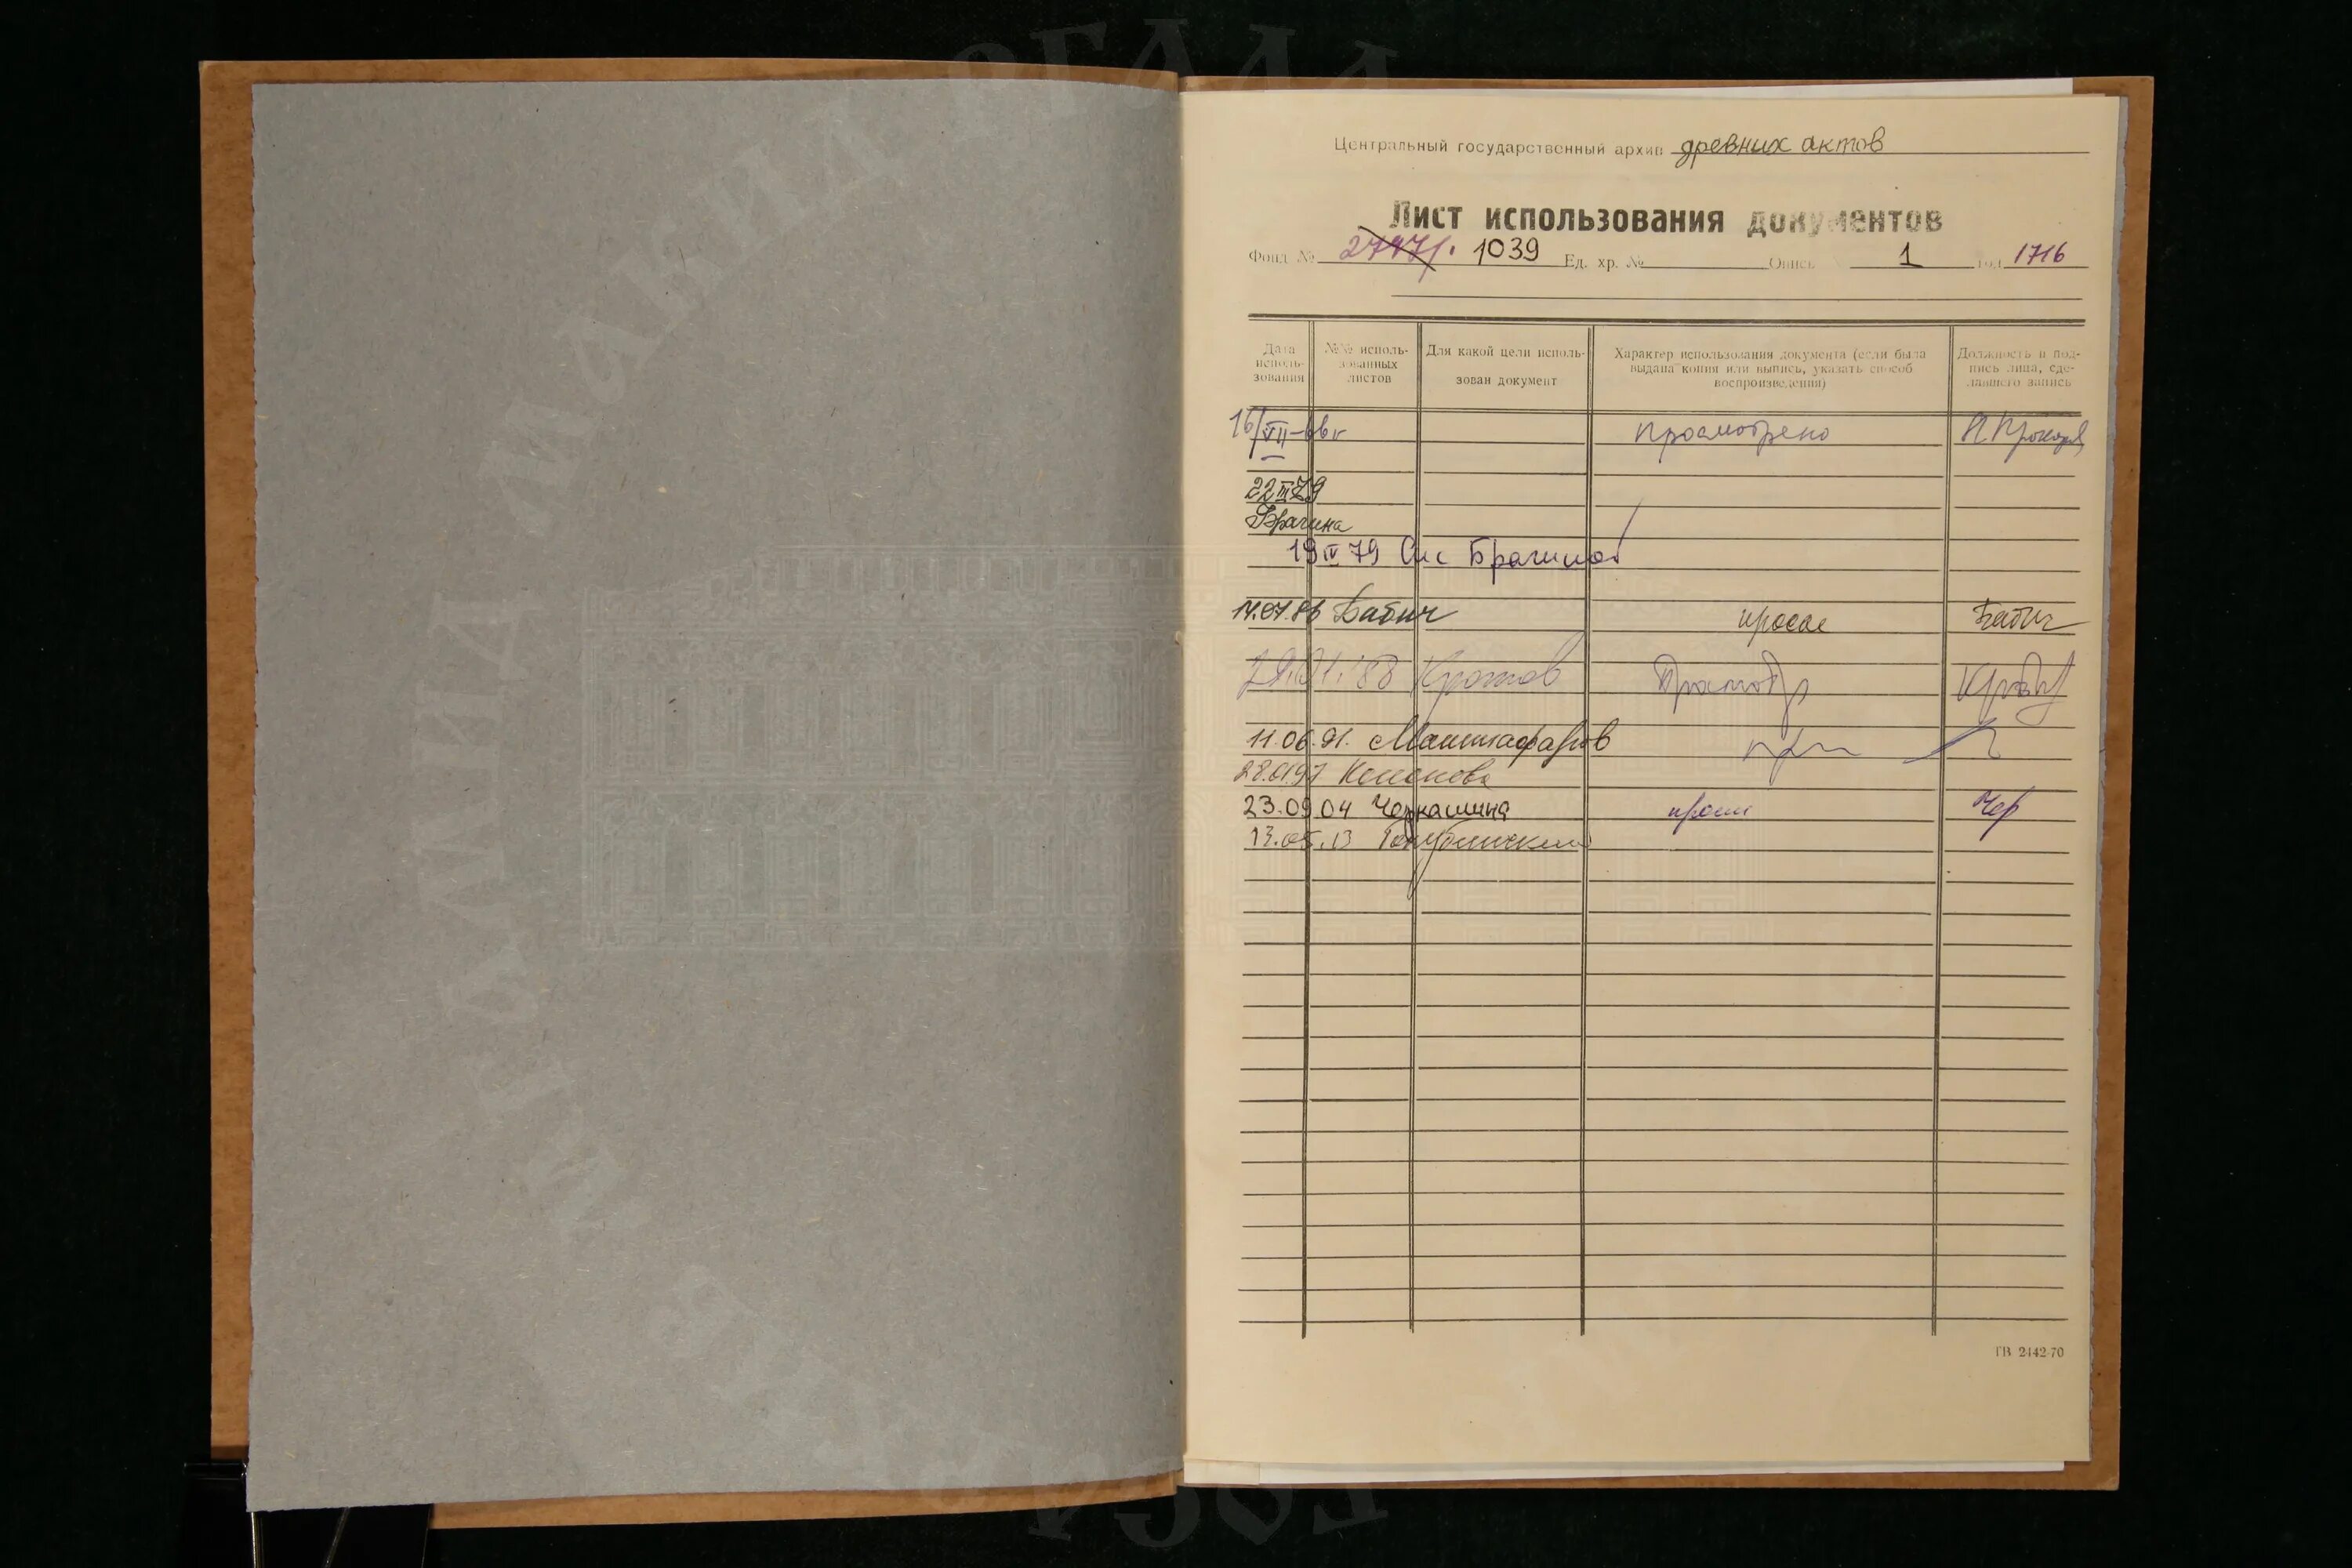 Центральный государственный архив древних актов
Лист использования документов
Фонд № 1039 Ед. хр. № Опись № 1 год 1716
Дата исполь-зования
№№ исполь-зованных листов
Для какой цели исполь-зован документ
Характер использования документа (если была выдана копия или выпись, указать способ воспроизведения)
Должность и под-пись лица, сде-лавшего запись
16/VII-66г просмотрено
22 III 79
Брагина
19 IV 79 Брагиной
14.07.86 Бабич Бабич
Кротов
11.06.91.
23.09.04 Черкашина Чер
13.05.13
ГВ 2442-70